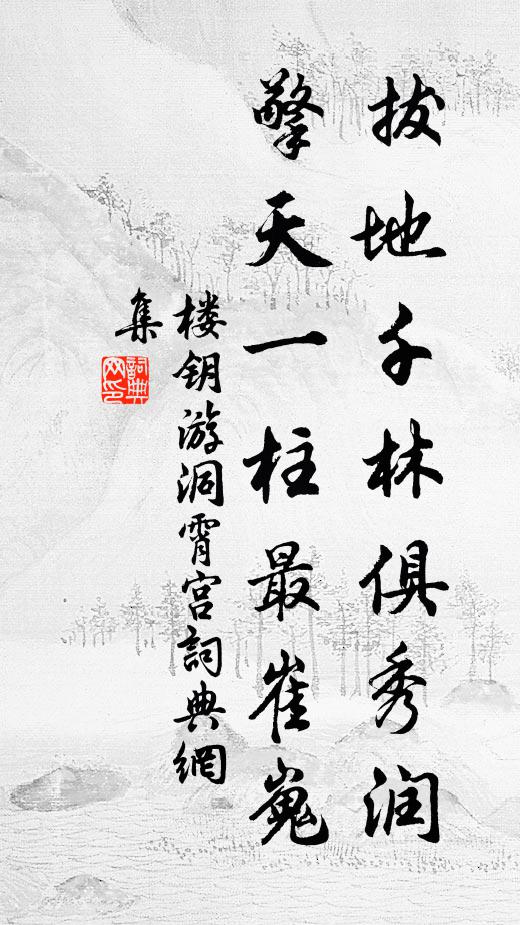 拔地千林俱秀润
擎天一柱最崔嵬
楼钥游洞霄宫詞典網
集
詞典網印